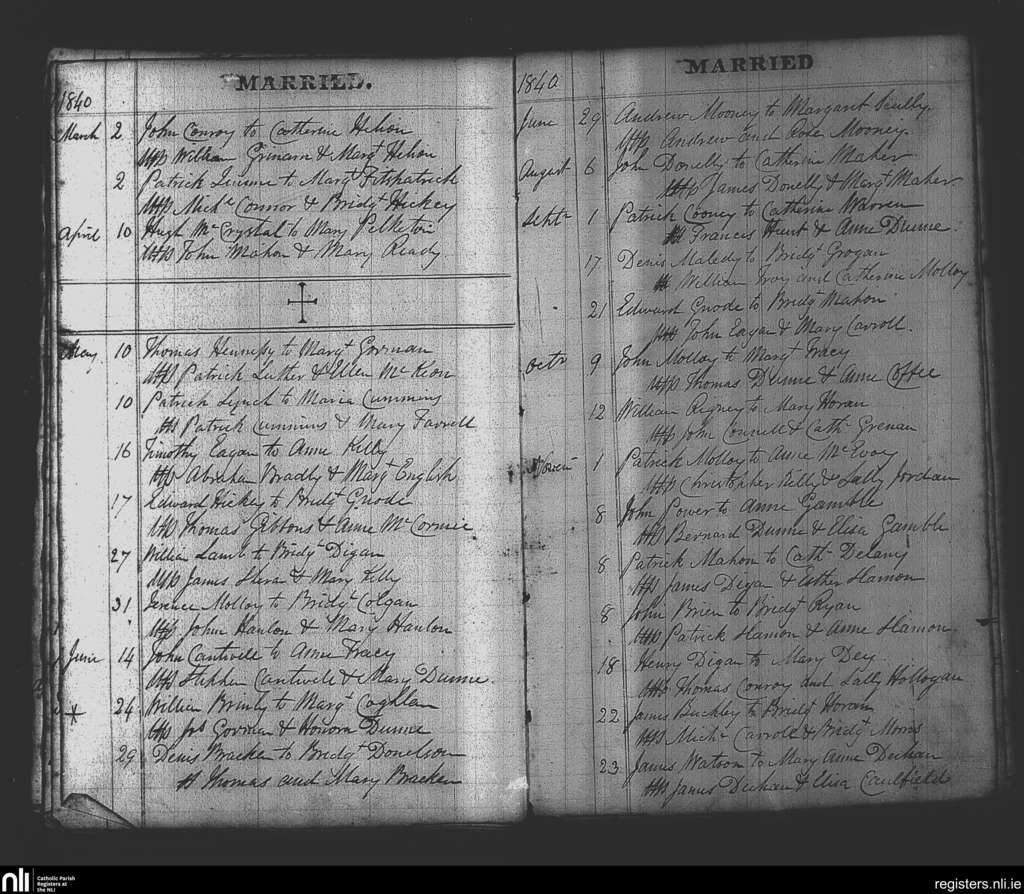 MARRIED.
1840
March 2 John Conroy to Catherine Helion
Wtts William Grimam & Margt Helion
2 Patrick to Margt Fitzpatrick
Wtts Michl Connor & Bridgt Hickey
April 10 Hugh Mc Crystal to Mary
Wtts John Mahon & Mary Ready
May 10 Thomas Hennessy to Margt Gorman
Wtts Patrick Luther & Ellen Mc Keon
10 Patrick Lynch to Maria Cummins
Wts Patrick Cummins & Mary Farrell
16 Timothy Eagan to Anne Kelly
Wtts Abraham Bradly & Margt English
17 Edward Hickey to Bridgt Gnode
Wtts Thomas Gibbons & Anne Mc Cormic
27 William Lamb to Bridgt Digan
Wtts James Shera & Mary Kelly
31 Terence Molloy to Bridgt Colgan
Wtts John Hanlon & Mary Hanlon
June 14 John Cantwell to Anne Tracy
Wtts Stephen Cantwell & Mary Dunne.
24 William to Margt Coghlan
Wtts Jas Gorman & Honora Dunne
29 Denis Bracken to Bridgt Donelson
Wts Thomas and Mary Bracken
MARRIED
1840
June 29 Andrew Mooney to Margaret Scully.
Wtts Andrew and Rose Mooney.
August 6 John Donelly to Catherine Maher
Wtts James Donelly & Margt Maher
Septr 1 Patrick Cooney to Catherine Warren
Wts Francis Hunt & Anne Dunne.
17 Denis Maledy to Bridgt Grogan
Wts William Troy and Catherine Molloy
21 Edward Gnode to Bridgt Mahon
Wtts John Eagan & Mary Carroll.
Octr 9 John Molloy to Margt Tracy
Wtts Thomas Dunne & Anne Coffee
12 William Rigney to Mary Horan
Wtts John Connell & Cath Grenan
Novem 1 Patrick Molloy to Anne Mc Evoy
Wtts Christopher Kelly & Sally Jordan
8 John Power to Anne Gamble
Wtts Bernard Dunne & Elisa Gamble
8 Patrick Mahon to Cath Delany
Wtts James Digan & Esther Hamon
8 John Brien to Bridgt Ryan
Wtts Patrick Hamon & Anne Hamon.
18 Henry Digan to Mary Dey.
Wtts Thomas Conroy and Sally Hollogan
22 James Buckley to Bridgt Horan
Wtts Michl Carroll & Bridgt Morris
23 James Watson to Mary Anne Deehan
Wtts James Deehan & Elisa Caulfield
nli Catholic Parish
Registers at
the NLI
registers.nli.ie